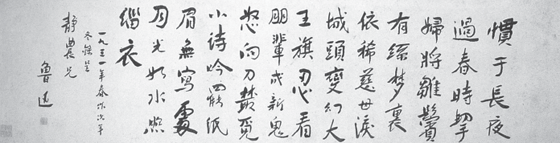 慣于長夜
過春時挈
婦將雛鬢
有絲夢裏
依稀慈母淚
城頭變幻大
王旗忍看
朋輩成新鬼
怒向刀叢覓
小詩吟罷低
眉無寫處
月光如水照
緇衣
一九三一年春作次年
冬録呈
静農兄
魯迅